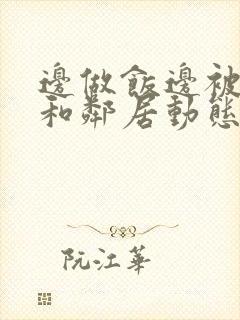 邊做飯邊被
和鄰居動態
阮江華